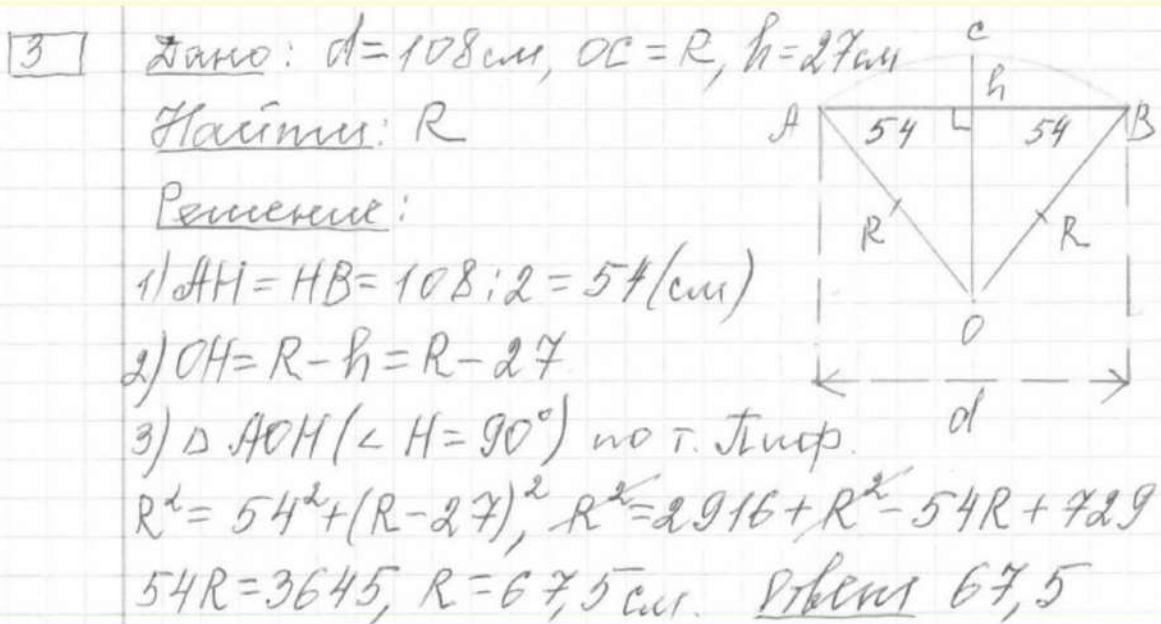 3 Дано: d=108см, OC=R, h=27см
Найти: R
Решение:
1) AH=HB=108:2=54(см)
2) OH=R-h=R-27
3) Δ AOH (< H=90°) по т. Пиф.
R²=54²+(R-27)², R²=2916+R²-54R+729
54R=3645, R=67,5см. Ответ 67,5
C
h
A 54 54 B
R R
O
d